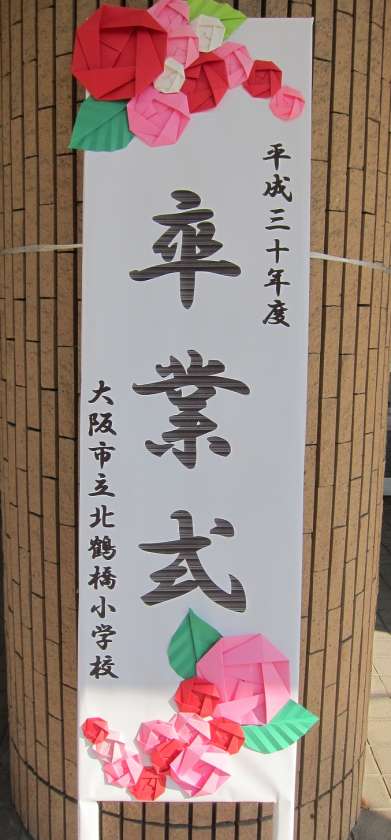 平成三十年度
卒業式
大阪市立北鶴橋小学校